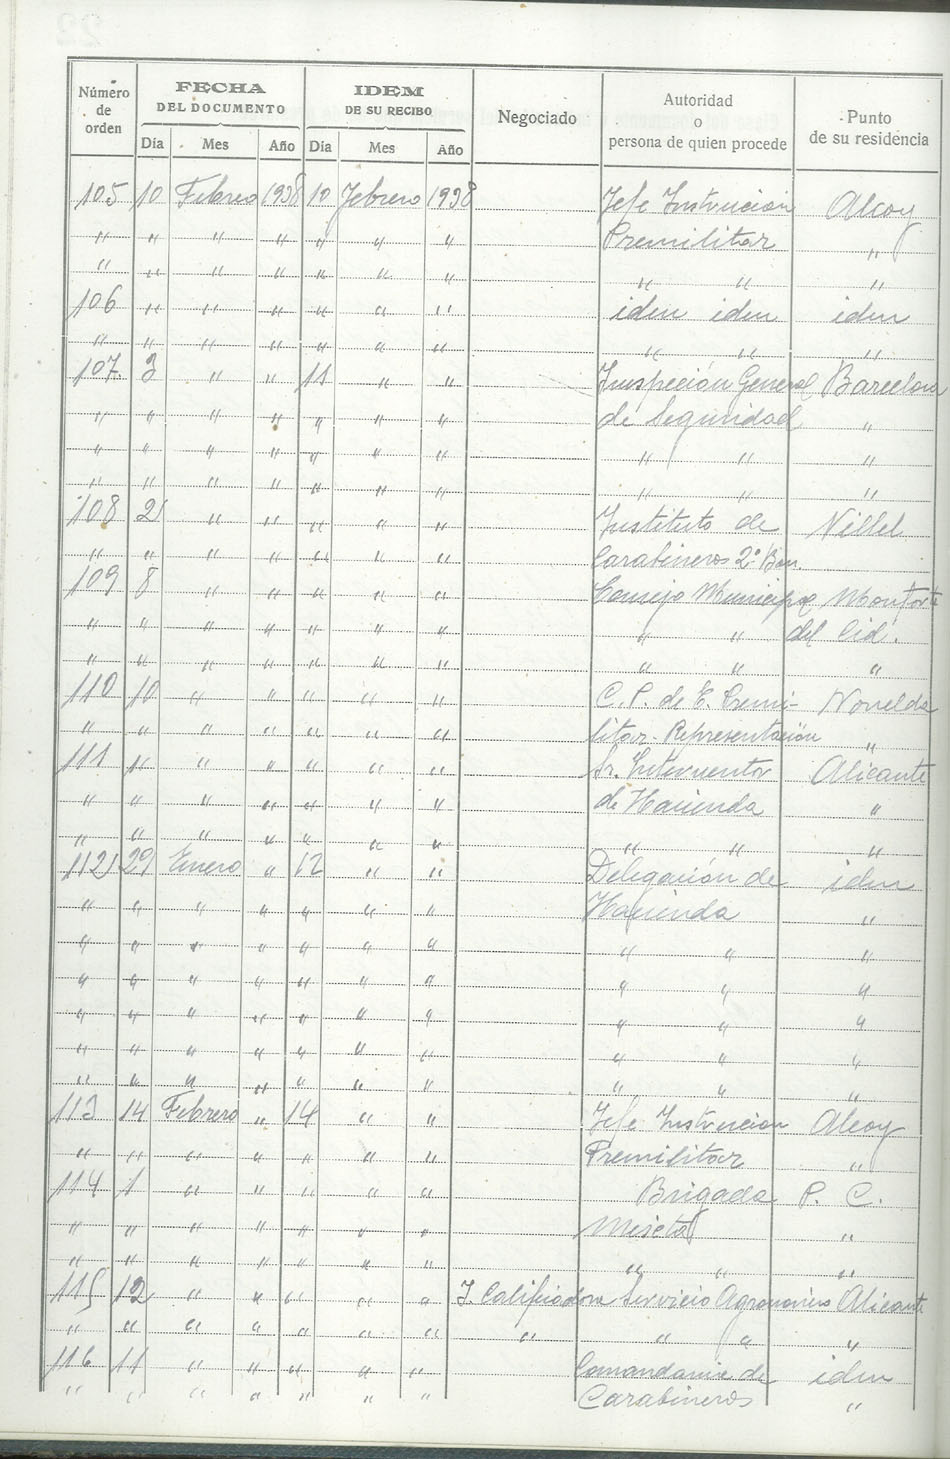 Número de orden | FECHA DEL DOCUMENTO | IDEM DE SU RECIBO | Negociado | Autoridad o persona de quien procede | Punto de su residencia
Día Mes Año Día Mes Año
105 10 Febrero 1938 10 Febrero 1938 Jefe Instrucion Alcoy
" " " " " " " Premilitar "
" " " " " " " " " "
106 " " " " " " iden iden iden
" " " " " " " " " "
107 3 " " 11 " " Inspeción General Barcelona
" " " " " " " de Seguridad "
" " " " " " " " " "
" " " " " " " " " "
108 21 " " " " " Instituto de
" " " " " " " Carabineros 2º Bon.
109 8 " " " " " Consejo Municipal Monforte
" " " " " " " " " del Cid.
" " " " " " " " " "
110 10 " " " " " C. P. de E. Premi- Novelda
" " " " " " " litar- Representación "
111 " " " " " " Sr. Interventor Alicante
" " " " " " " de Hacienda "
" " " " " " " " " "
112 29 Enero " 12 " " Delegación de iden
" " " " " " " Hacienda "
" " " " " " " " " "
" " " " " " " " " "
" " " " " " " " " "
" " " " " " " " " "
" " " " " " " " " "
113 14 Febrero " 14 " " Jefe Instrucion Alcoy
" " " " " " " Premilitar "
114 1 " " " " " Brigada P. C.
" " " " " " " "
" " " " " " " " " "
115 12 " " " " " J. Calificadora Servicio Agronomico Alicante
" " " " " " " " " " "
116 11 " " " " " Comandancia de iden
" " " " " " " Carabineros "